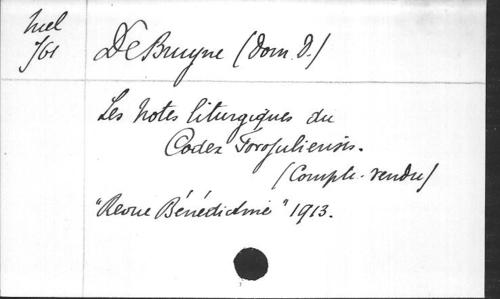 Mel
/61
De Bruyne (Dom. D.)
Les Notes liturgiques du
Codex Forojuliensis.
(Compte-rendu)
"Revue Bénédictine" 1913.